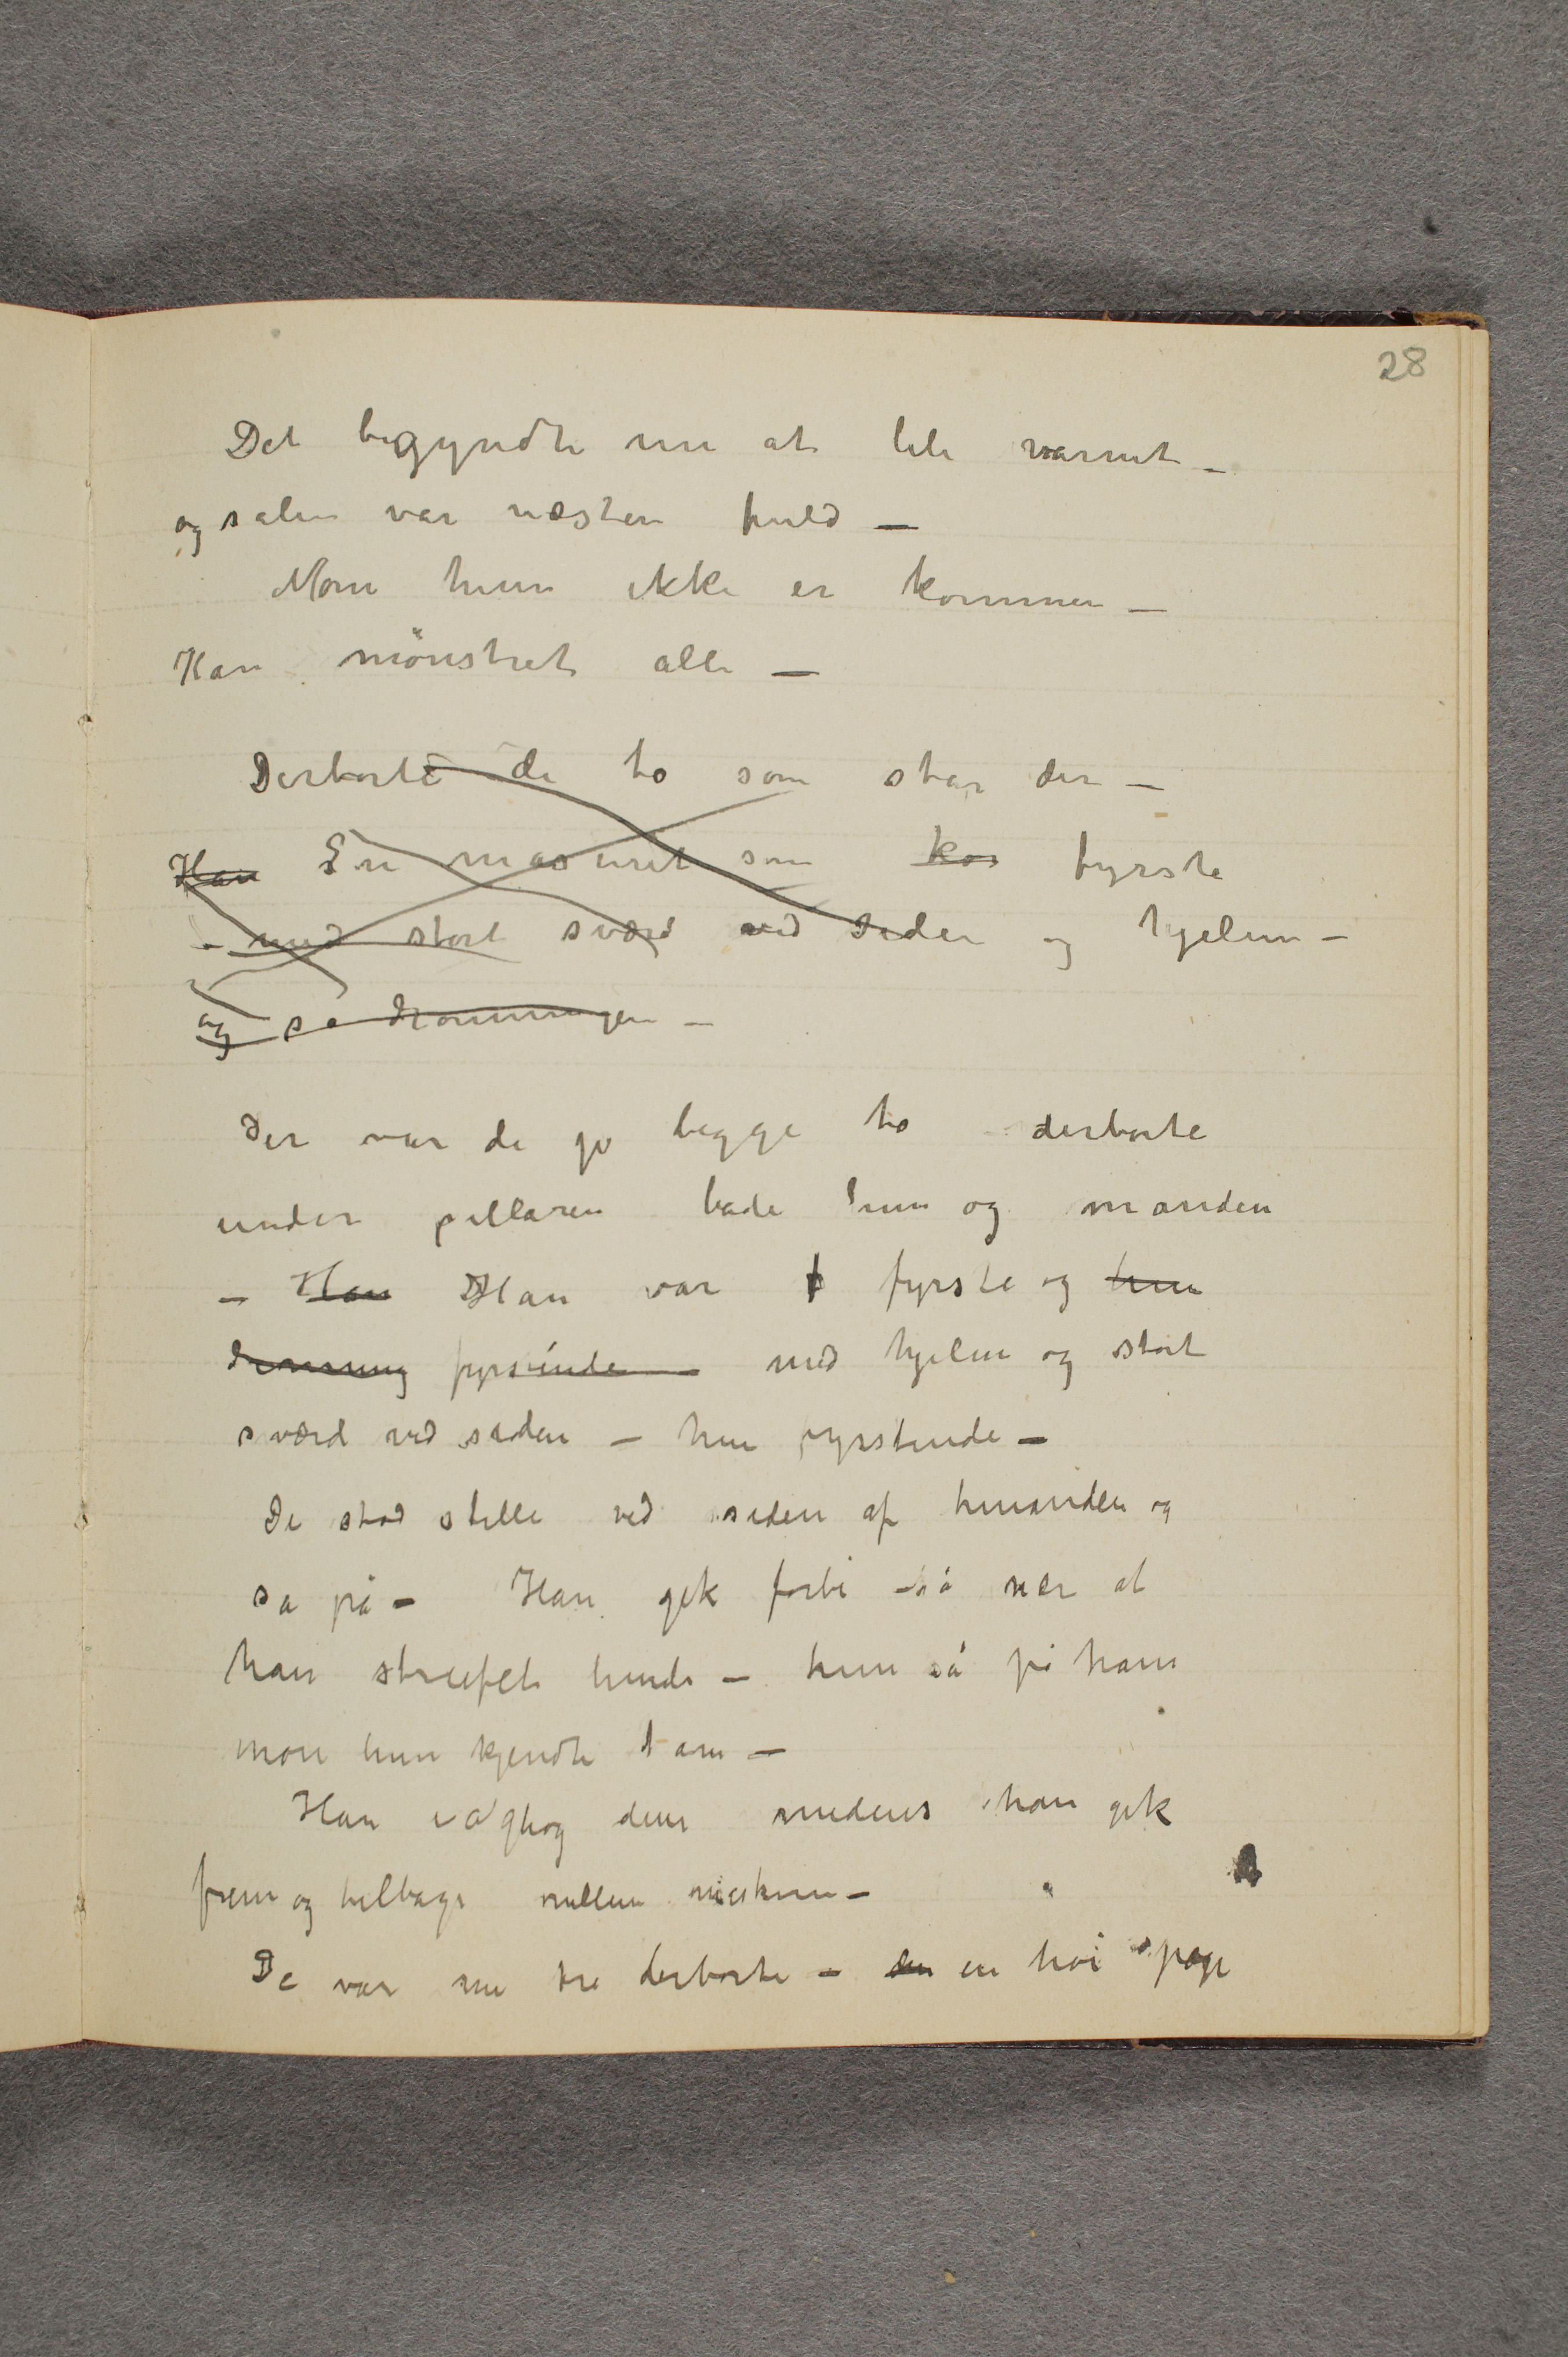 28
Det begyndte nu at bli varmt –
og salen var næsten fuld –
Mon hun ikke er kommen –
Han mönstret alle –
Derborte de to som står der –
Han En maskeret som kon fyrste
– med stort sværd ved siden og hjelm –
og så dronningen –
Der var de jo begge to derborte
under pillaren både hun og manden
– Han Han var f fyrste og hun
dronning fyrstinde med hjelm og stort
sværd ved siden – hun fyrstinde –
De stod stille ved siden af hinanden og
så på – Han gik forbi så nær at
han streifet hende – hun så på ham
mon hun kjendte ham –
Han iagttog dem medens han gik
frem og tilbage mellem maskerne –
De var nu tre derborte – en en høi page